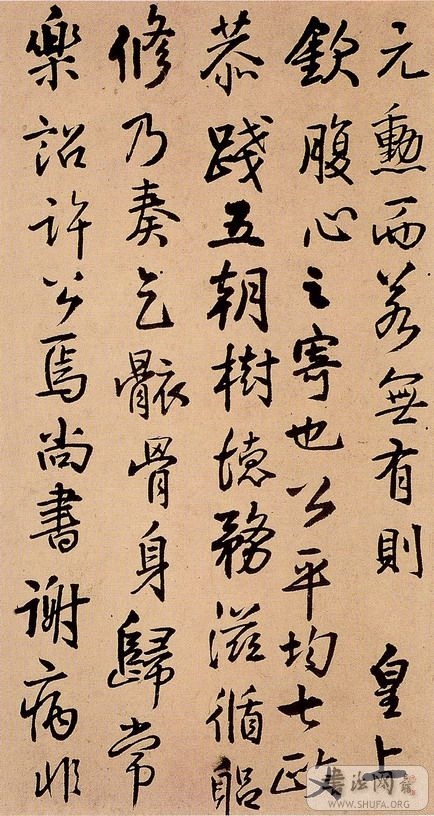 元勳而若無有則 皇上
欽腹心之寄也公平均七政
恭踐五朝樹德務滋循
修乃奏乞骸骨身歸常
樂詔許公焉尚書謝病非
书法网
WWW.SHUFA.ORG